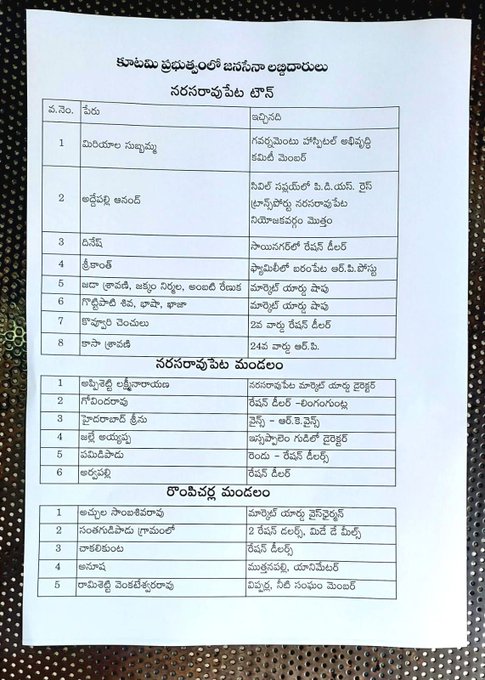 కూటమి ప్రభుత్వంలో జనసేనా లబ్దిదారులు
నరసరావుపేట టౌన్
వ.నెం. పేరు ఇచ్చినది
1 మిరియాల సుబ్బమ్మ గవర్నమెంటు హాస్పిటల్ అభివృద్ధి
కమిటీ మెంబర్
2 అద్దేపల్లి ఆనంద్ సివిల్ సప్లయ్‌లో పి.డి.యస్. రైస్
ట్రాన్స్‌పోర్టు నరసరావుపేట
నియోజకవర్గం మొత్తం
3 దినేష్ సాయినగర్‌లో రేషన్ డీలర్
4 శ్రీకాంత్ ఫ్యామిలీలో బరంపేట ఆర్.పి.పోస్టు
5 జడా శ్రావణి, జక్కం నిర్మల, అంబటి రేణుక మార్కెట్ యార్డు షాపు
6 గొట్టిపాటి శివ, భాషా, ఖాజా మార్కెట్ యార్డు షాపు
7 కొవ్వూరి చెంచులు 2వ వార్డు రేషన్ డీలర్
8 కాసా శ్రావణి 24వ వార్డు ఆర్.పి.
నరసరావుపేట మండలం
1 అప్పిశెట్టి లక్ష్మీనారాయణ నరసరావుపేట మార్కెట్ యార్డు డైరెక్టర్
2 గోవిందరావు రేషన్ డీలర్ -లింగంగుంట్ల
3 హైదరాబాద్ శ్రీను వైన్స్ - ఆర్.కె.వైన్స్
4 జల్లే అయ్యప్ప ఇస్సప్పాలెం గుడిలో డైరెక్టర్
5 పమిడిపాడు రెండు - రేషన్ డీలర్స్
6 అర్వపల్లి రేషన్ డీలర్
రొంపిచర్ల మండలం
1 అచ్చుల సాంబశివరావు మార్కెట్ యార్డు వైస్‌ఛైర్మన్
2 సంతగుడిపాడు గ్రామంలో 2 రేషన్ డలర్స్, మిడే డే మీల్స్
3 చాకలికుంట రేషన్ డీలర్స్
4 అనూష ముత్తనపల్లి, యానిమేటర్
5 రామిశెట్టి వెంకటేశ్వరరావు విప్పర్ల, నీటి సంఘం మెంబర్